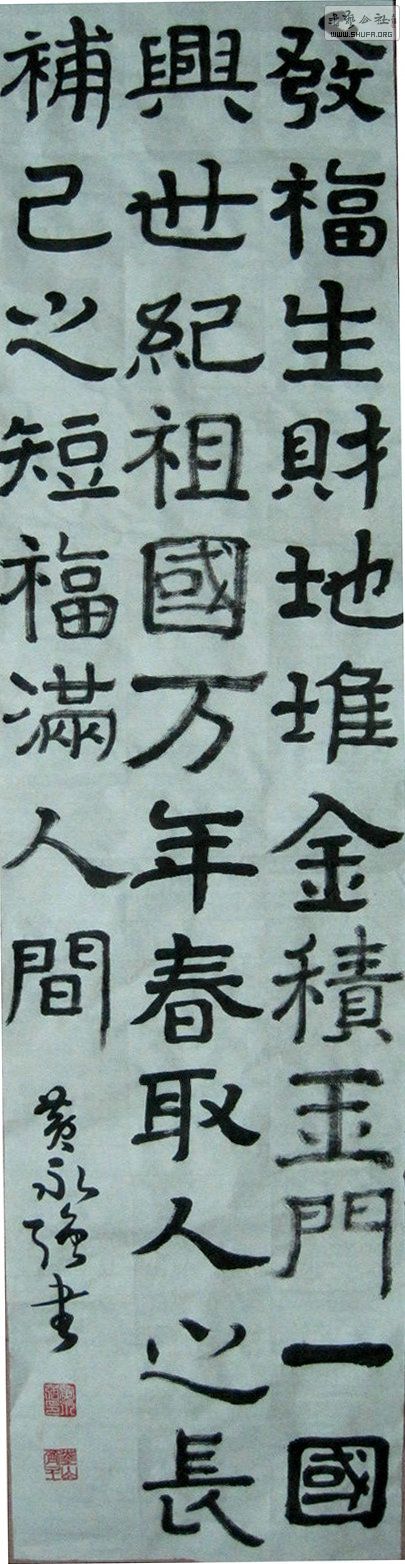 發福生財地堆金積玉門一國
興世紀祖國万年春取人之長
補己之短福滿人間
黄永强书
WWW.SHUFA.ORG